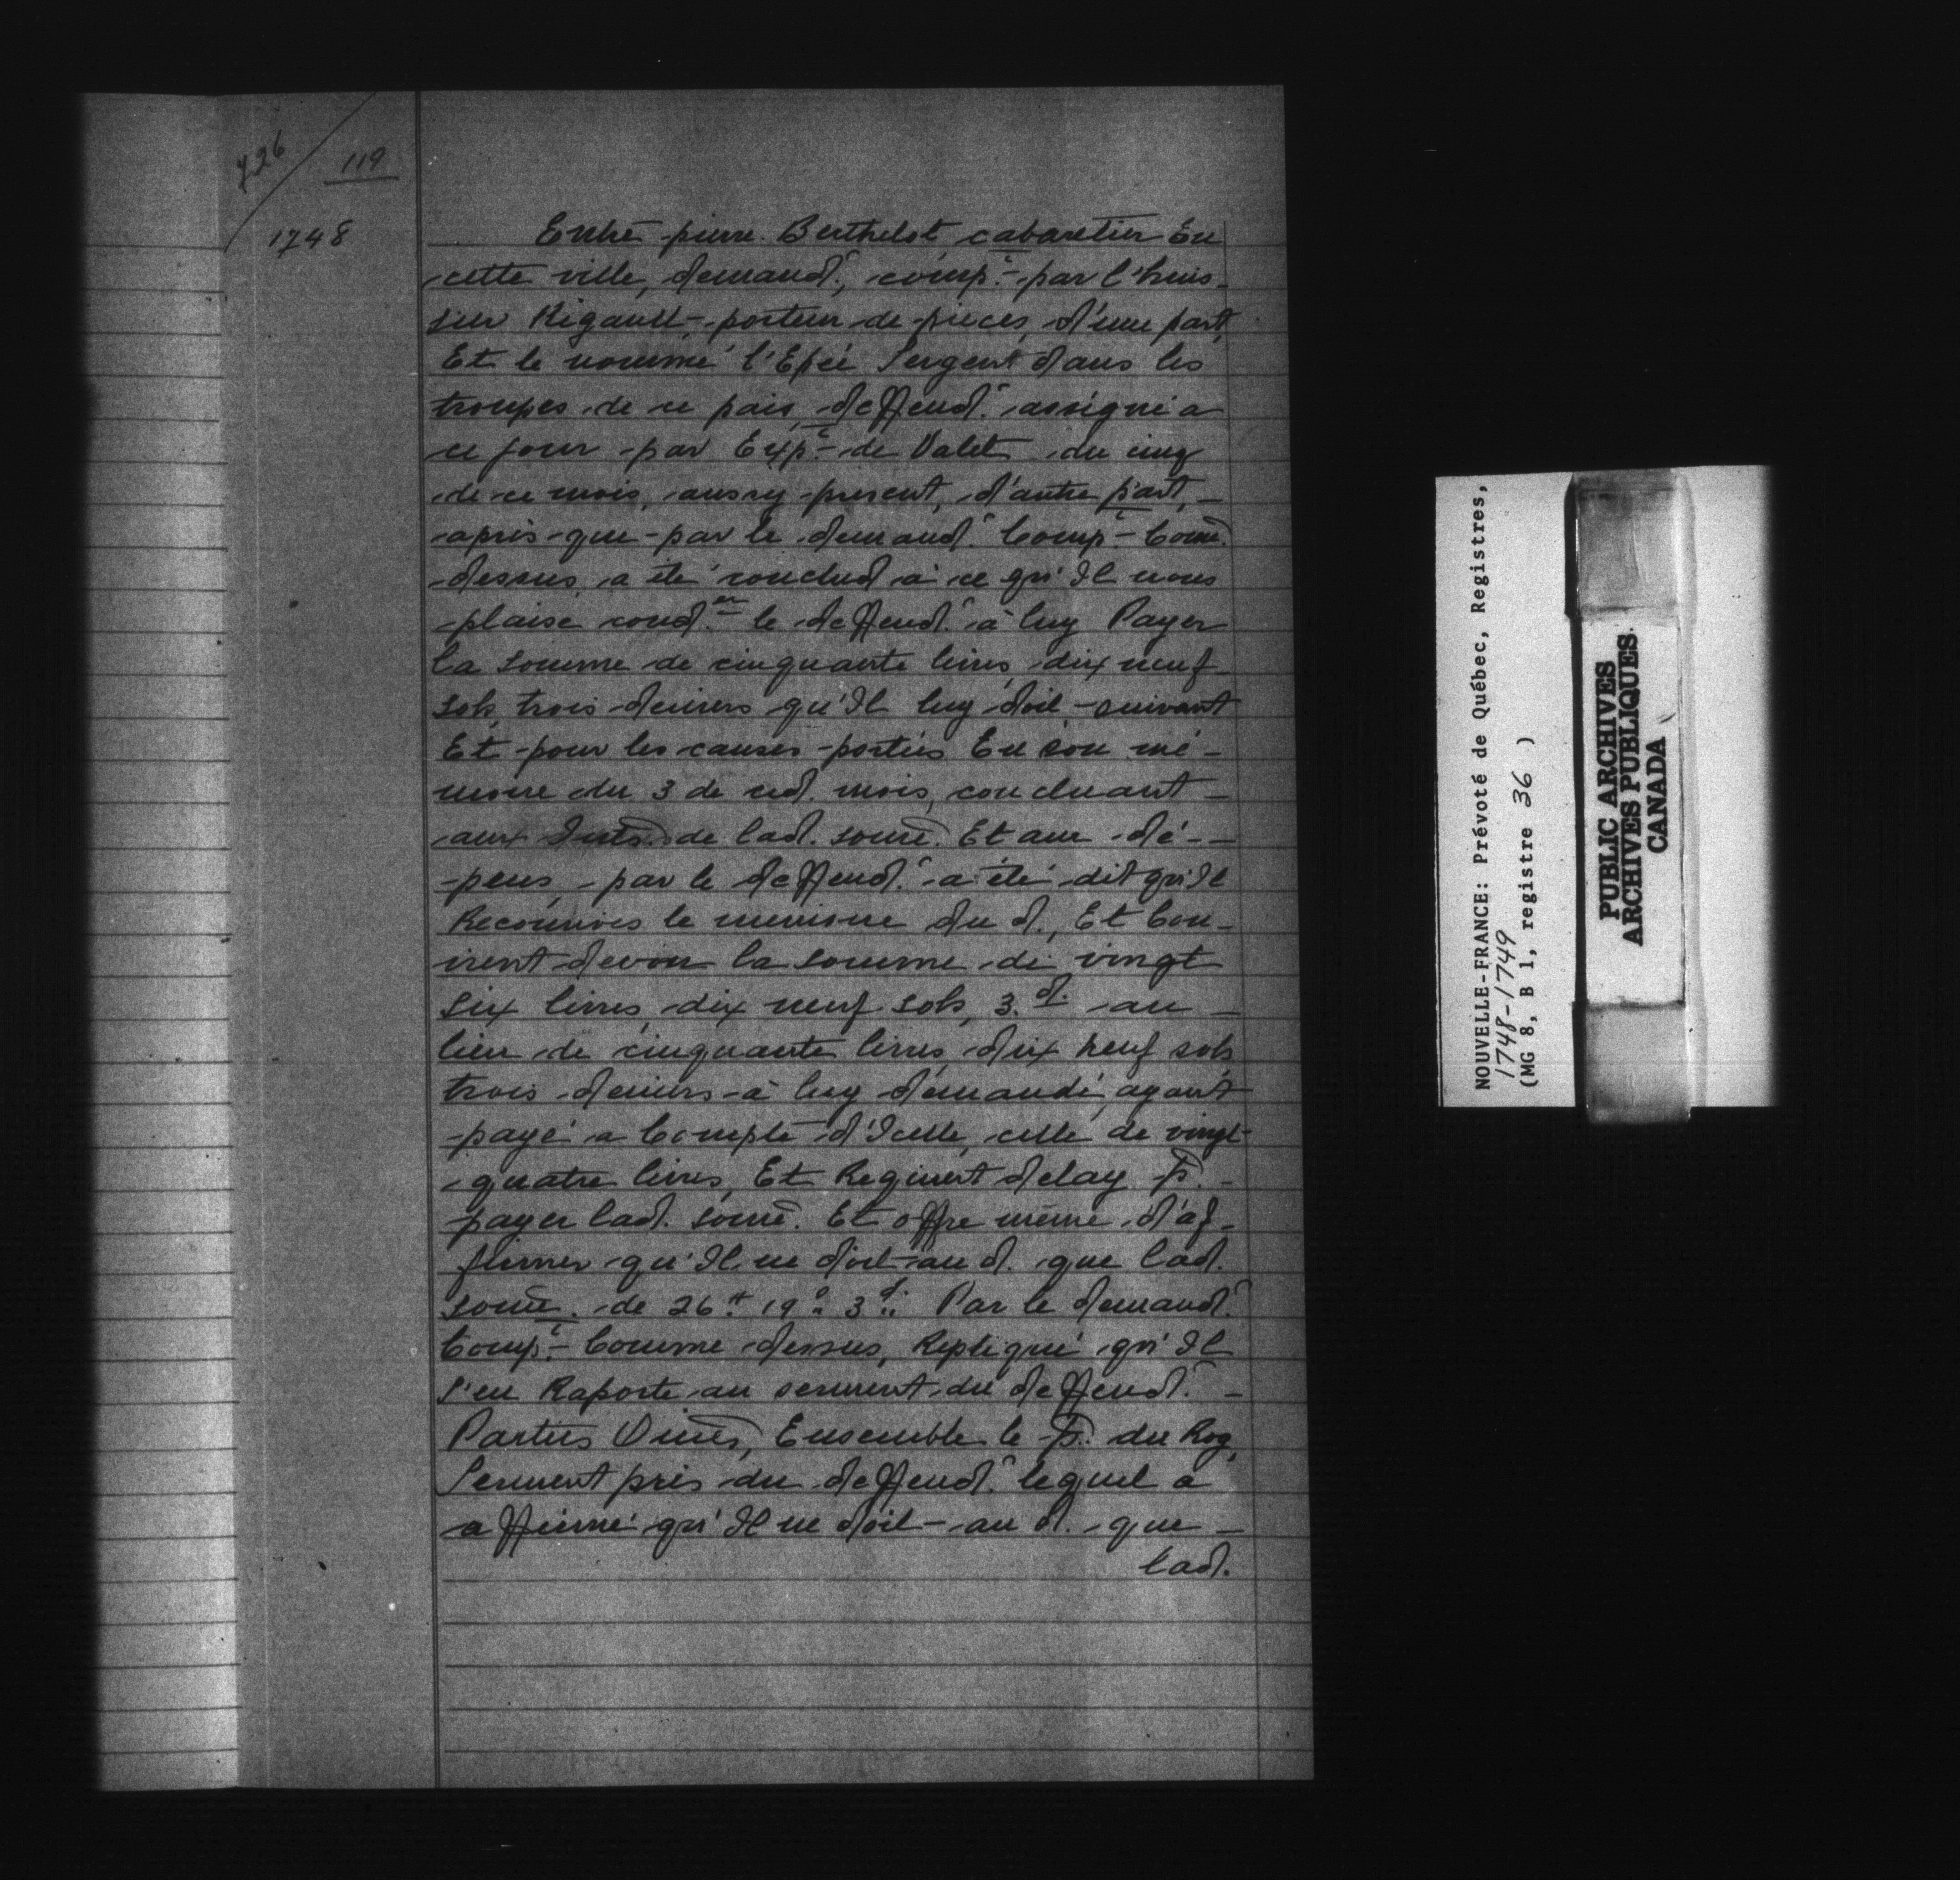 726 / 119
1748
Entre pierre Berthelot cabaretier En
cette ville, demand.r, comp.t par l'huis-
sier Rigault, porteur de pieces, d'une part,
Et le nommé l'Epée Sergent dans les
troupes de ce pais, deffend.r assigné a
ce jour par Exp.t de Valet du cinq
de ce mois, aussy present, d'autre part,
après que par le demand.r Comp.t Come.
dessus, a été conclud à ce qu'Il nous
plaise cond.er le deffend.r à luy Payer
la somme de cinquante livres, dix neuf
sols, trois deniers qu'Il luy doit suivant
Et pour les causes portées En son mé-
moire du 3 de ced. mois, concluant
aux Ints. de lad. some. Et aux dé-
pens, par le deffend.r a été dit qu'Il
Reconnois le memoire du d., Et Con-
vient devoir la somme de vingt
six livres, dix neuf sols, 3. d. au
lieu de cinquante livres dix neuf sols
trois deniers à luy demandé, ayant
payé a Compte d'Icelle, celle de vingt-
quatre livres, Et Requiert delay p.
payer lad. some. Et offre même d'af-
firmer qu'Il ne doit au d. que lad.
some. de 26.tt 19.s 3.d: Par le demand.r
Comp.t Comme dessus, Repliqué qu'Il
s'en Raporte au serment du deffend.r
Parties Ouies, Ensemble le P. du Roy,
Serment pris du deffend.r lequel a
affirmé qu'Il ne doit au d. que
lad.
NOUVELLE-FRANCE: Prévoté de Québec, Registres,
1748-1749
(MG 8, B 1, registre 36 )
PUBLIC ARCHIVES
ARCHIVES PUBLIQUES
CANADA